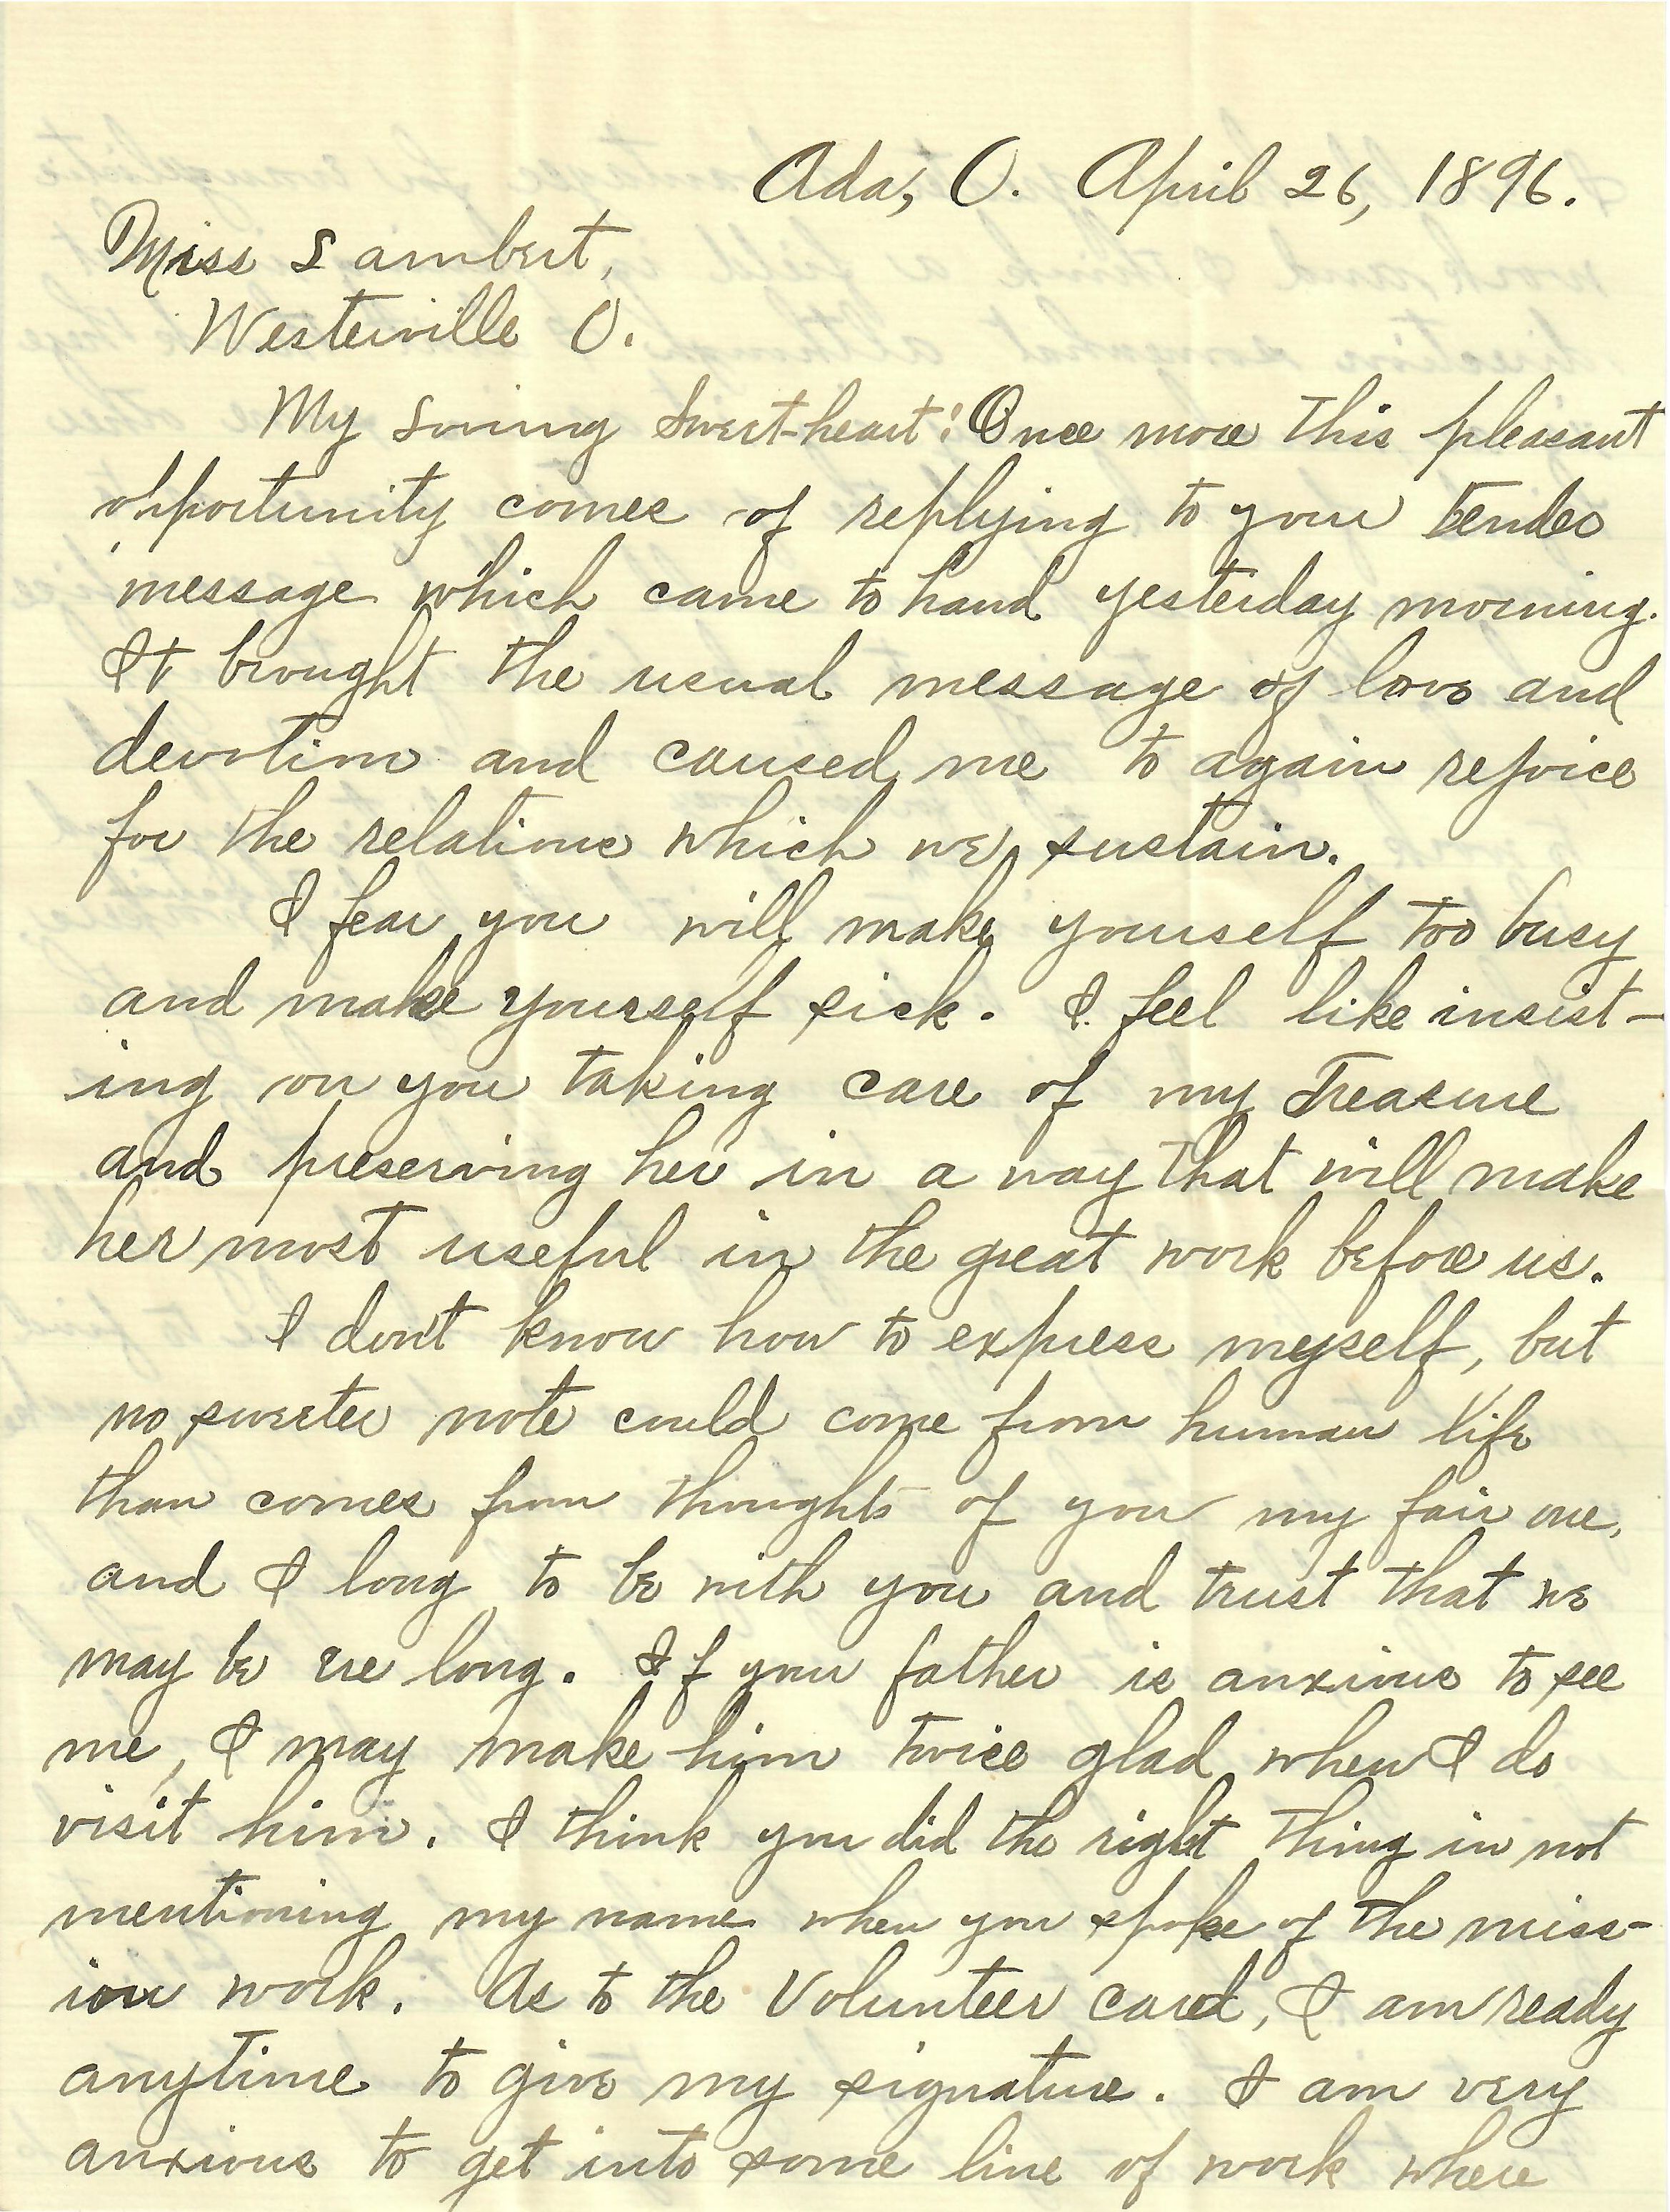 Ada, O. April 26, 1896.
Miss Lambert,
Westerville O.
My Loving Sweet-heart: Once more this pleasant
opportunity comes of replying to your tender
message which came to hand yesterday morning.
It brought the usual message of love and
devotion and caused me to again rejoice
for the relations which we sustain.
I fear you will make yourself too busy
and make yourself sick. I feel like insist-
ing on you taking care of my Treasure
and preserving her in a way that will make
her most useful in the great work before us.
I don't know how to express myself, but
no sweeter note could come from human life
than comes from thoughts of you my fair one,
and I long to be with you and trust that we
may be ere long. If your father is anxious to see
me, I may make him twice glad when I do
visit him. I think you did the right thing in not
mentioning my name when you spoke of the miss-
ion work. As to the Volunteer card, I am ready
anytime to give my signature. I am very
anxious to get into some line of work where